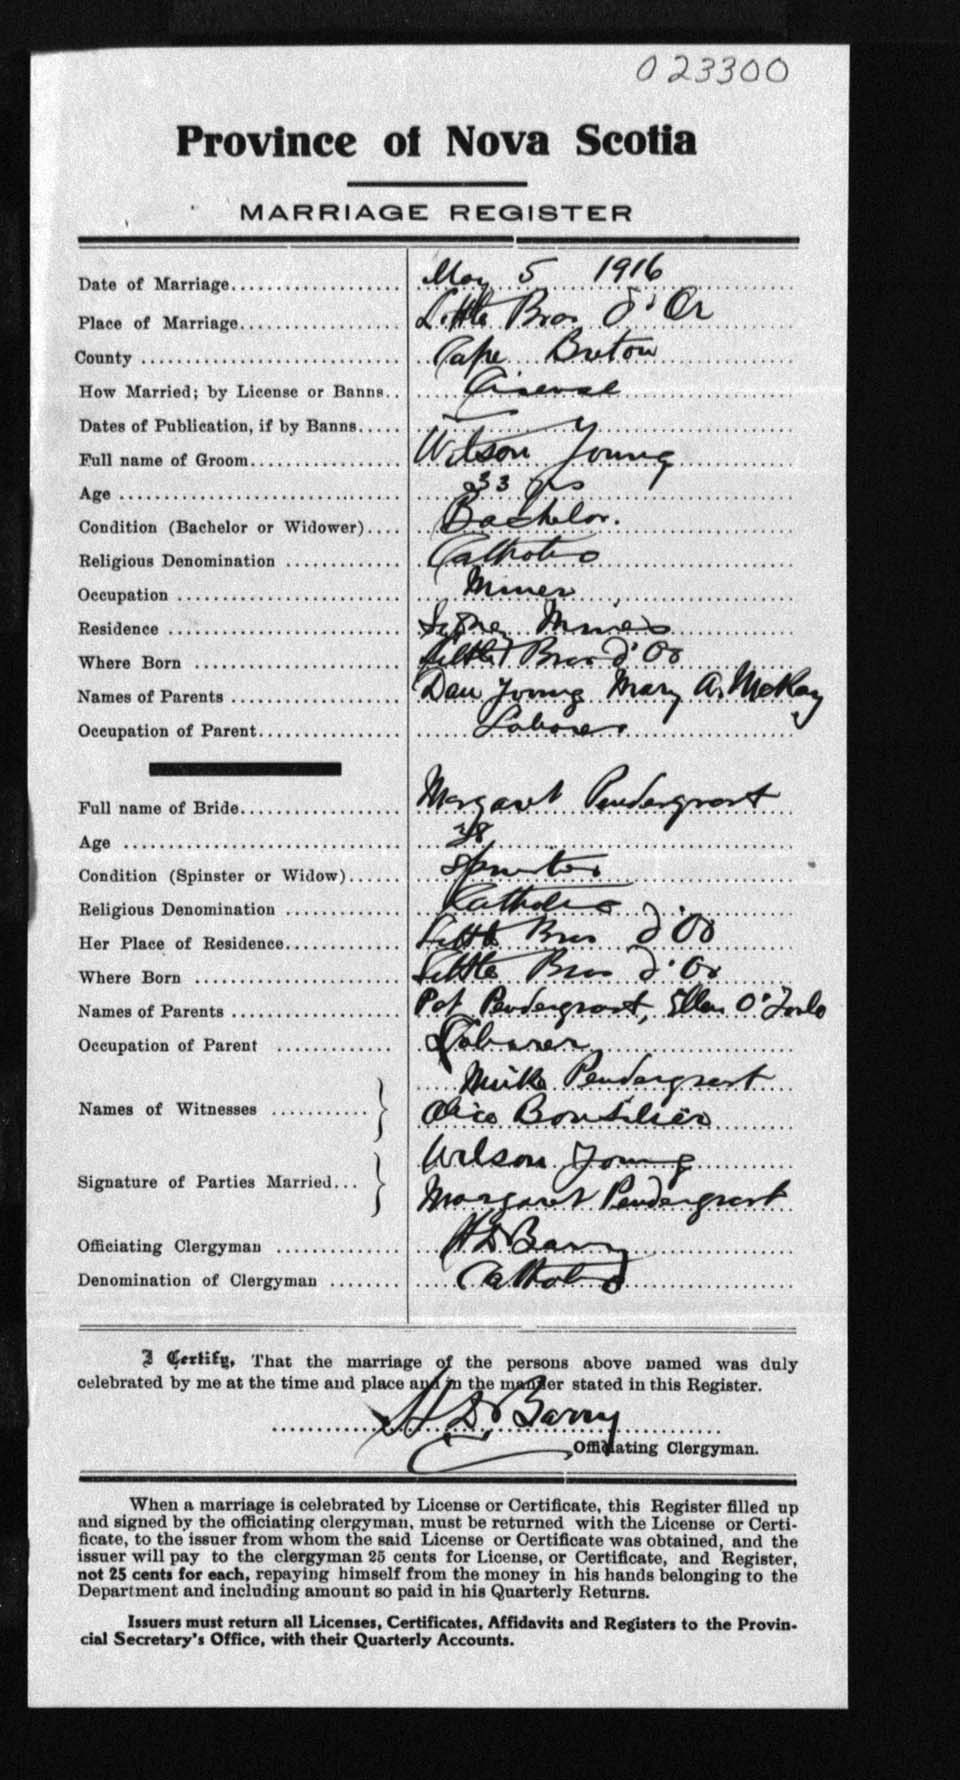 023300
Province of Nova Scotia
MARRIAGE REGISTER
Date of Marriage.................. May 5 1916
Place of Marriage.................. Little Bras d'Or
County .................. Cape Breton
How Married; by License or Banns.. License
Dates of Publication, if by Banns.....
Full name of Groom.................. Wilson Young
Age .................. 33 yrs
Condition (Bachelor or Widower).... Bachelor.
Religious Denomination ............ Catholic
Occupation .................. Miner
Residence .................. Sydney Mines
Where Born .................. Little Bras d'Or
Names of Parents .................. Dan Young Mary A. McKay
Occupation of Parent.................. Laborer
Full name of Bride.................. Margaret Pendergrast
Age .................. 38
Condition (Spinster or Widow)...... Spinster
Religious Denomination ............ Catholic
Her Place of Residence............ Little Bras d'Or
Where Born .................. Little Bras d'Or
Names of Parents .................. Pat Pendergrast, Ellen O'
Occupation of Parent ............ Laborer
Names of Witnesses ........... } Mike Pendergrast
Alice Boutilier
Signature of Parties Married... } Wilson Young
Margaret Pendergrast
Officiating Clergyman ............ H D Barry
Denomination of Clergyman ........ Catholic
I Certify, That the marriage of the persons above named was duly
celebrated by me at the time and place and in the manner stated in this Register.
H D Barry
Officiating Clergyman.
When a marriage is celebrated by License or Certificate, this Register filled up
and signed by the officiating clergyman, must be returned with the License or Certi-
ficate, to the issuer from whom the said License or Certificate was obtained, and the
issuer will pay to the clergyman 25 cents for License, or Certificate, and Register,
not 25 cents for each, repaying himself from the money in his hands belonging to the
Department and including amount so paid in his Quarterly Returns.
Issuers must return all Licenses, Certificates, Affidavits and Registers to the Provin-
cial Secretary's Office, with their Quarterly Accounts.